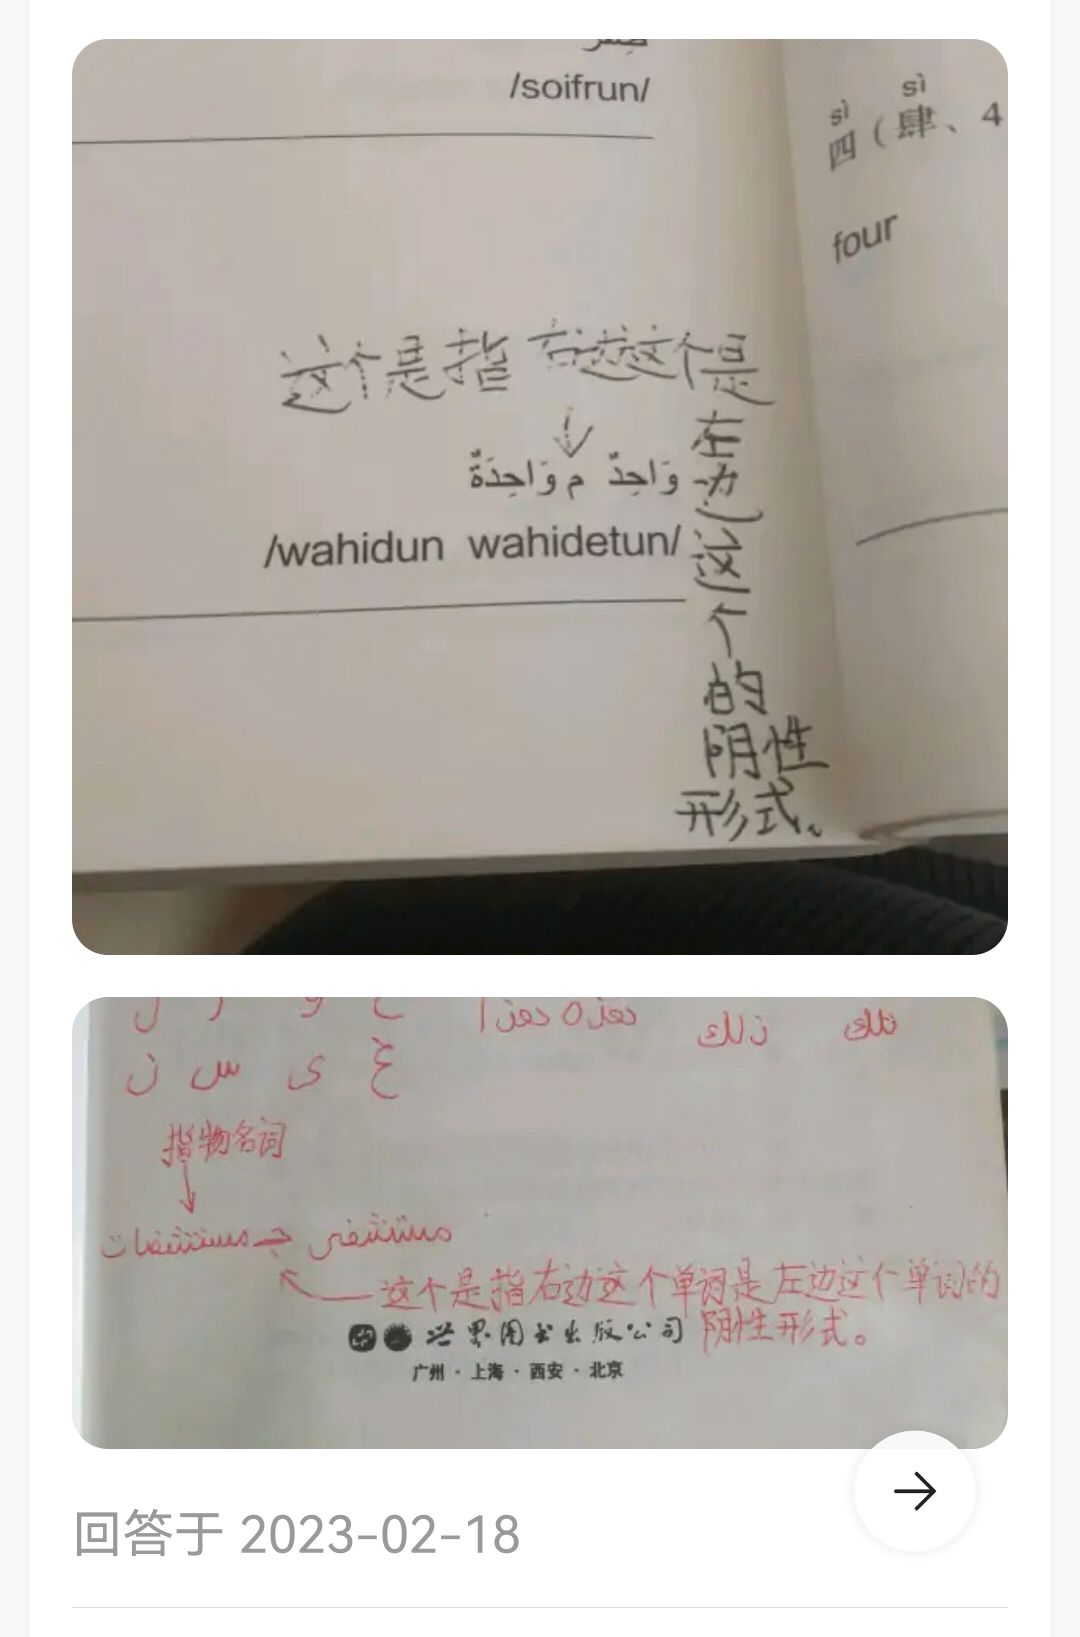 صفر
/soifrun/
sì sì
四（肆、4
four
这个是指右边这个是
左边这个的阴性形式。
وَاحِدٌ م وَاحِدَةٌ
/wahidun wahidetun/
ذلك تلك
ن س ى غ
指物名词
مستشفى ج مستشفات
这个是指右边这个单词是左边这个单词的
阴性形式。
世界图书出版公司
广州·上海·西安·北京
回答于 2023-02-18